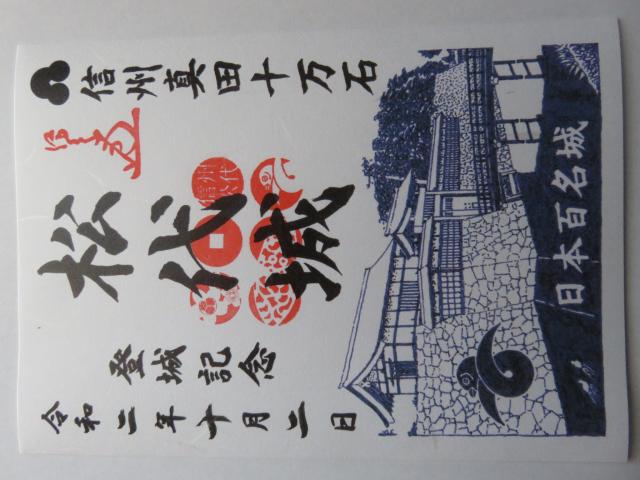 信州真田十万石
松代城
信州
松代
登城記念
令和二年十月二日
日本百名城